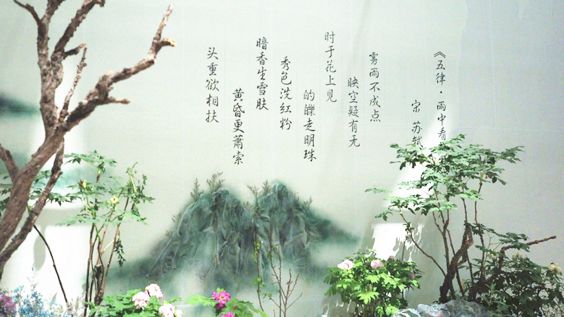 《五律·雨中看
宋 苏
雾雨不成点
映空疑有无
时于花上见
的皪走明珠
秀色洗红粉
暗香生雪肤
黄昏更萧索
头重欲相扶